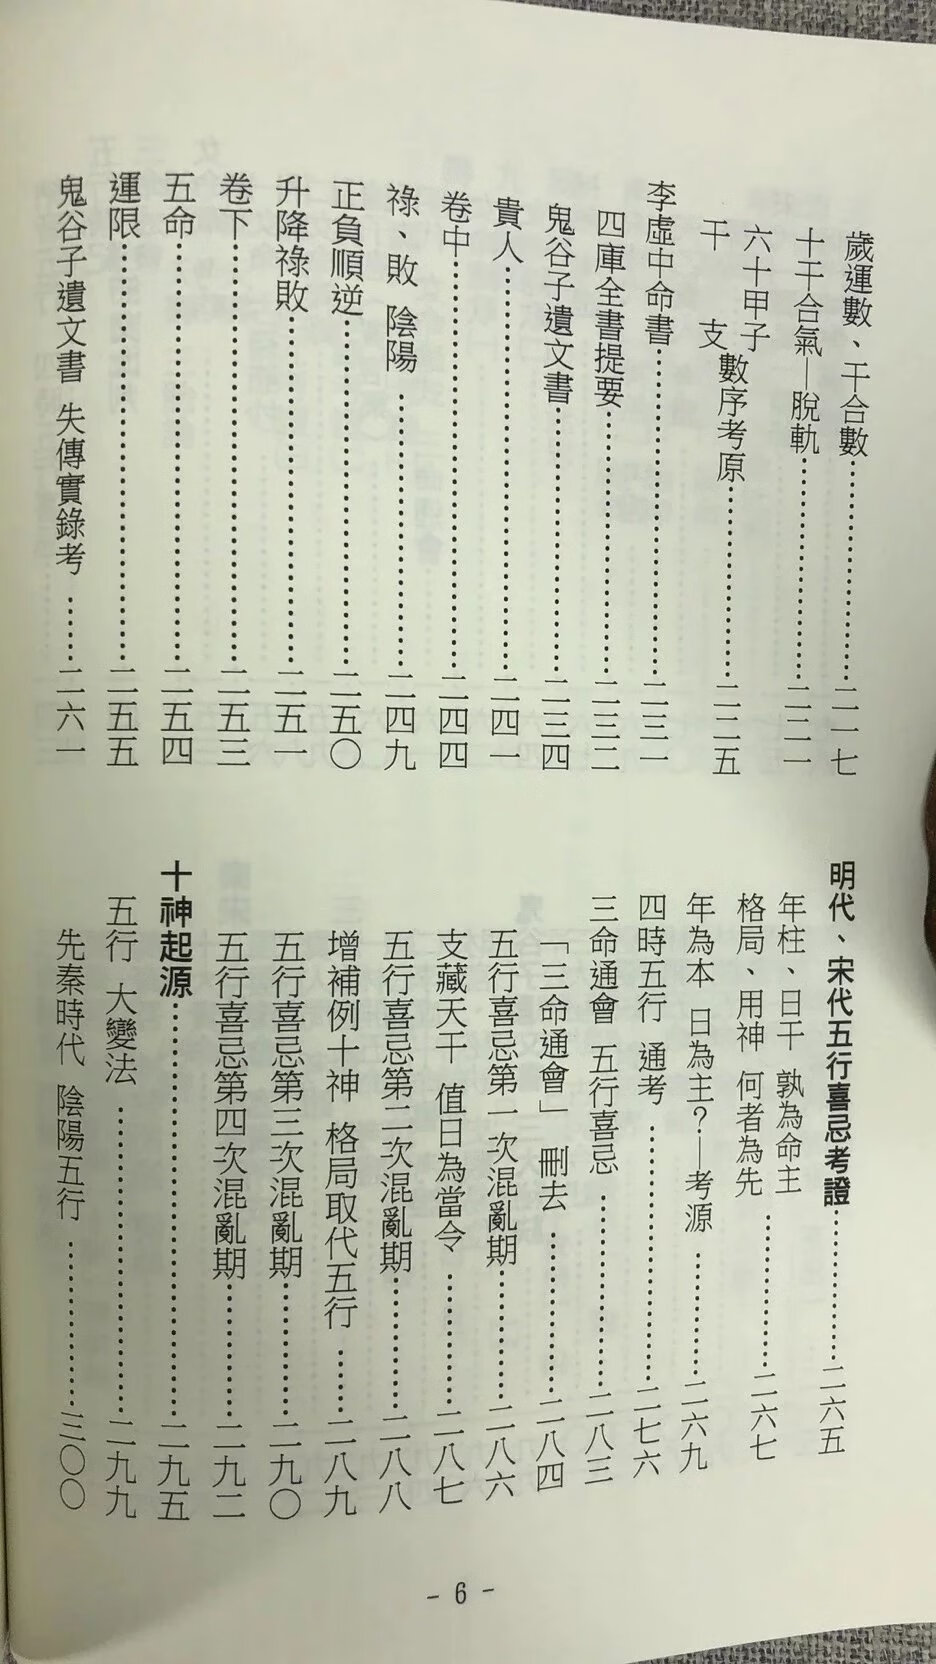 歲運數、干合數……………………二一七
十干合氣—脫軌……………………二二一
六十甲子
干　　支　數序考原……………………二二五
李虛中命書……………………二三一
四庫全書提要……………………二三二
鬼谷子遺文書……………………二三四
貴人……………………二四一
卷中……………………二四四
祿、敗 陰陽……………………二四九
正負順逆……………………二五〇
升降祿敗……………………二五一
卷下……………………二五三
五命……………………二五四
運限……………………二五五
鬼谷子遺文書 失傳實錄考……二六一
明代、宋代五行喜忌考證……………二六五
年柱、日干 孰為命主
格局、用神 何者為先……………二六七
年為本 日為主?—考源……………二六九
四時五行 通考……………………二七六
三命通會 五行喜忌……………………二八三
「三命通會」 刪去……………………二八四
五行喜忌第一次混亂期……………二八六
支藏天干 值日為當令……………二八七
五行喜忌第二次混亂期……………二八八
增補例十神 格局取代五行……二八九
五行喜忌第三次混亂期……………二九〇
五行喜忌第四次混亂期……………二九二
十神起源……………………二九五
五行 大變法……………………二九九
先秦時代 陰陽五行……………………三〇〇
- 6 -